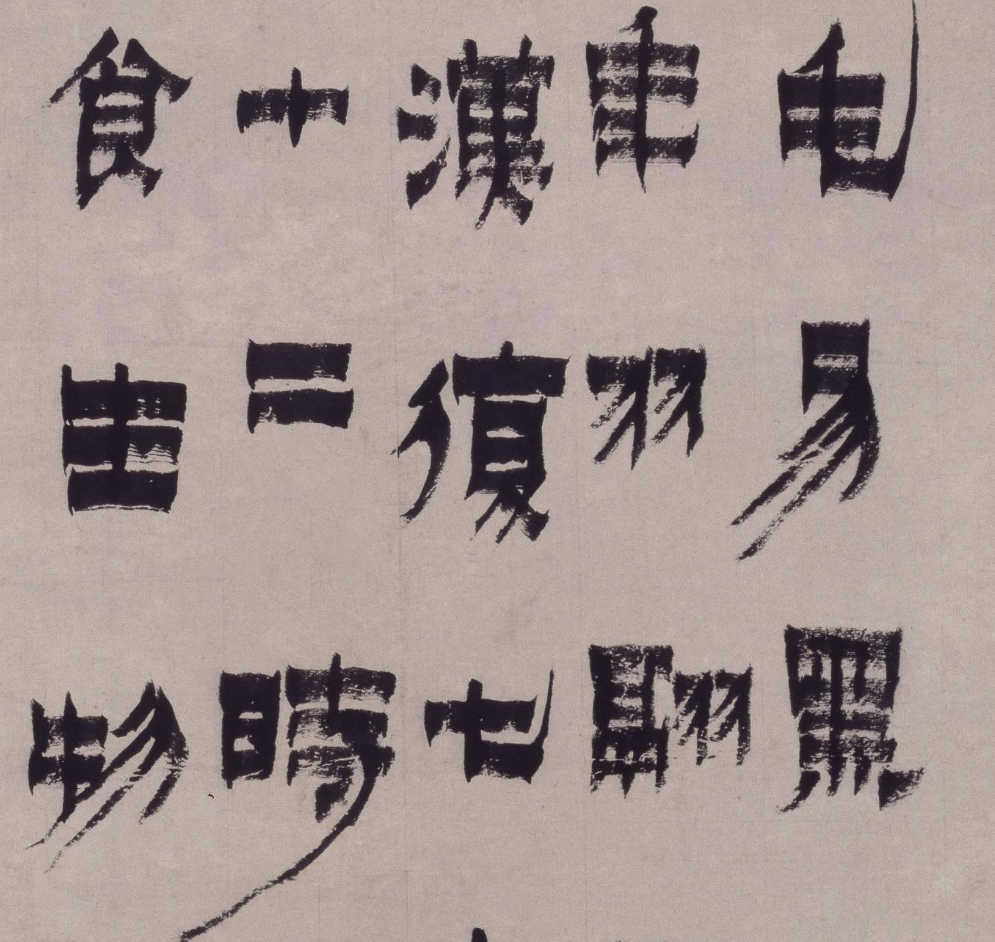 毛易黑
年羽翮
漢復七
十二時
食生物